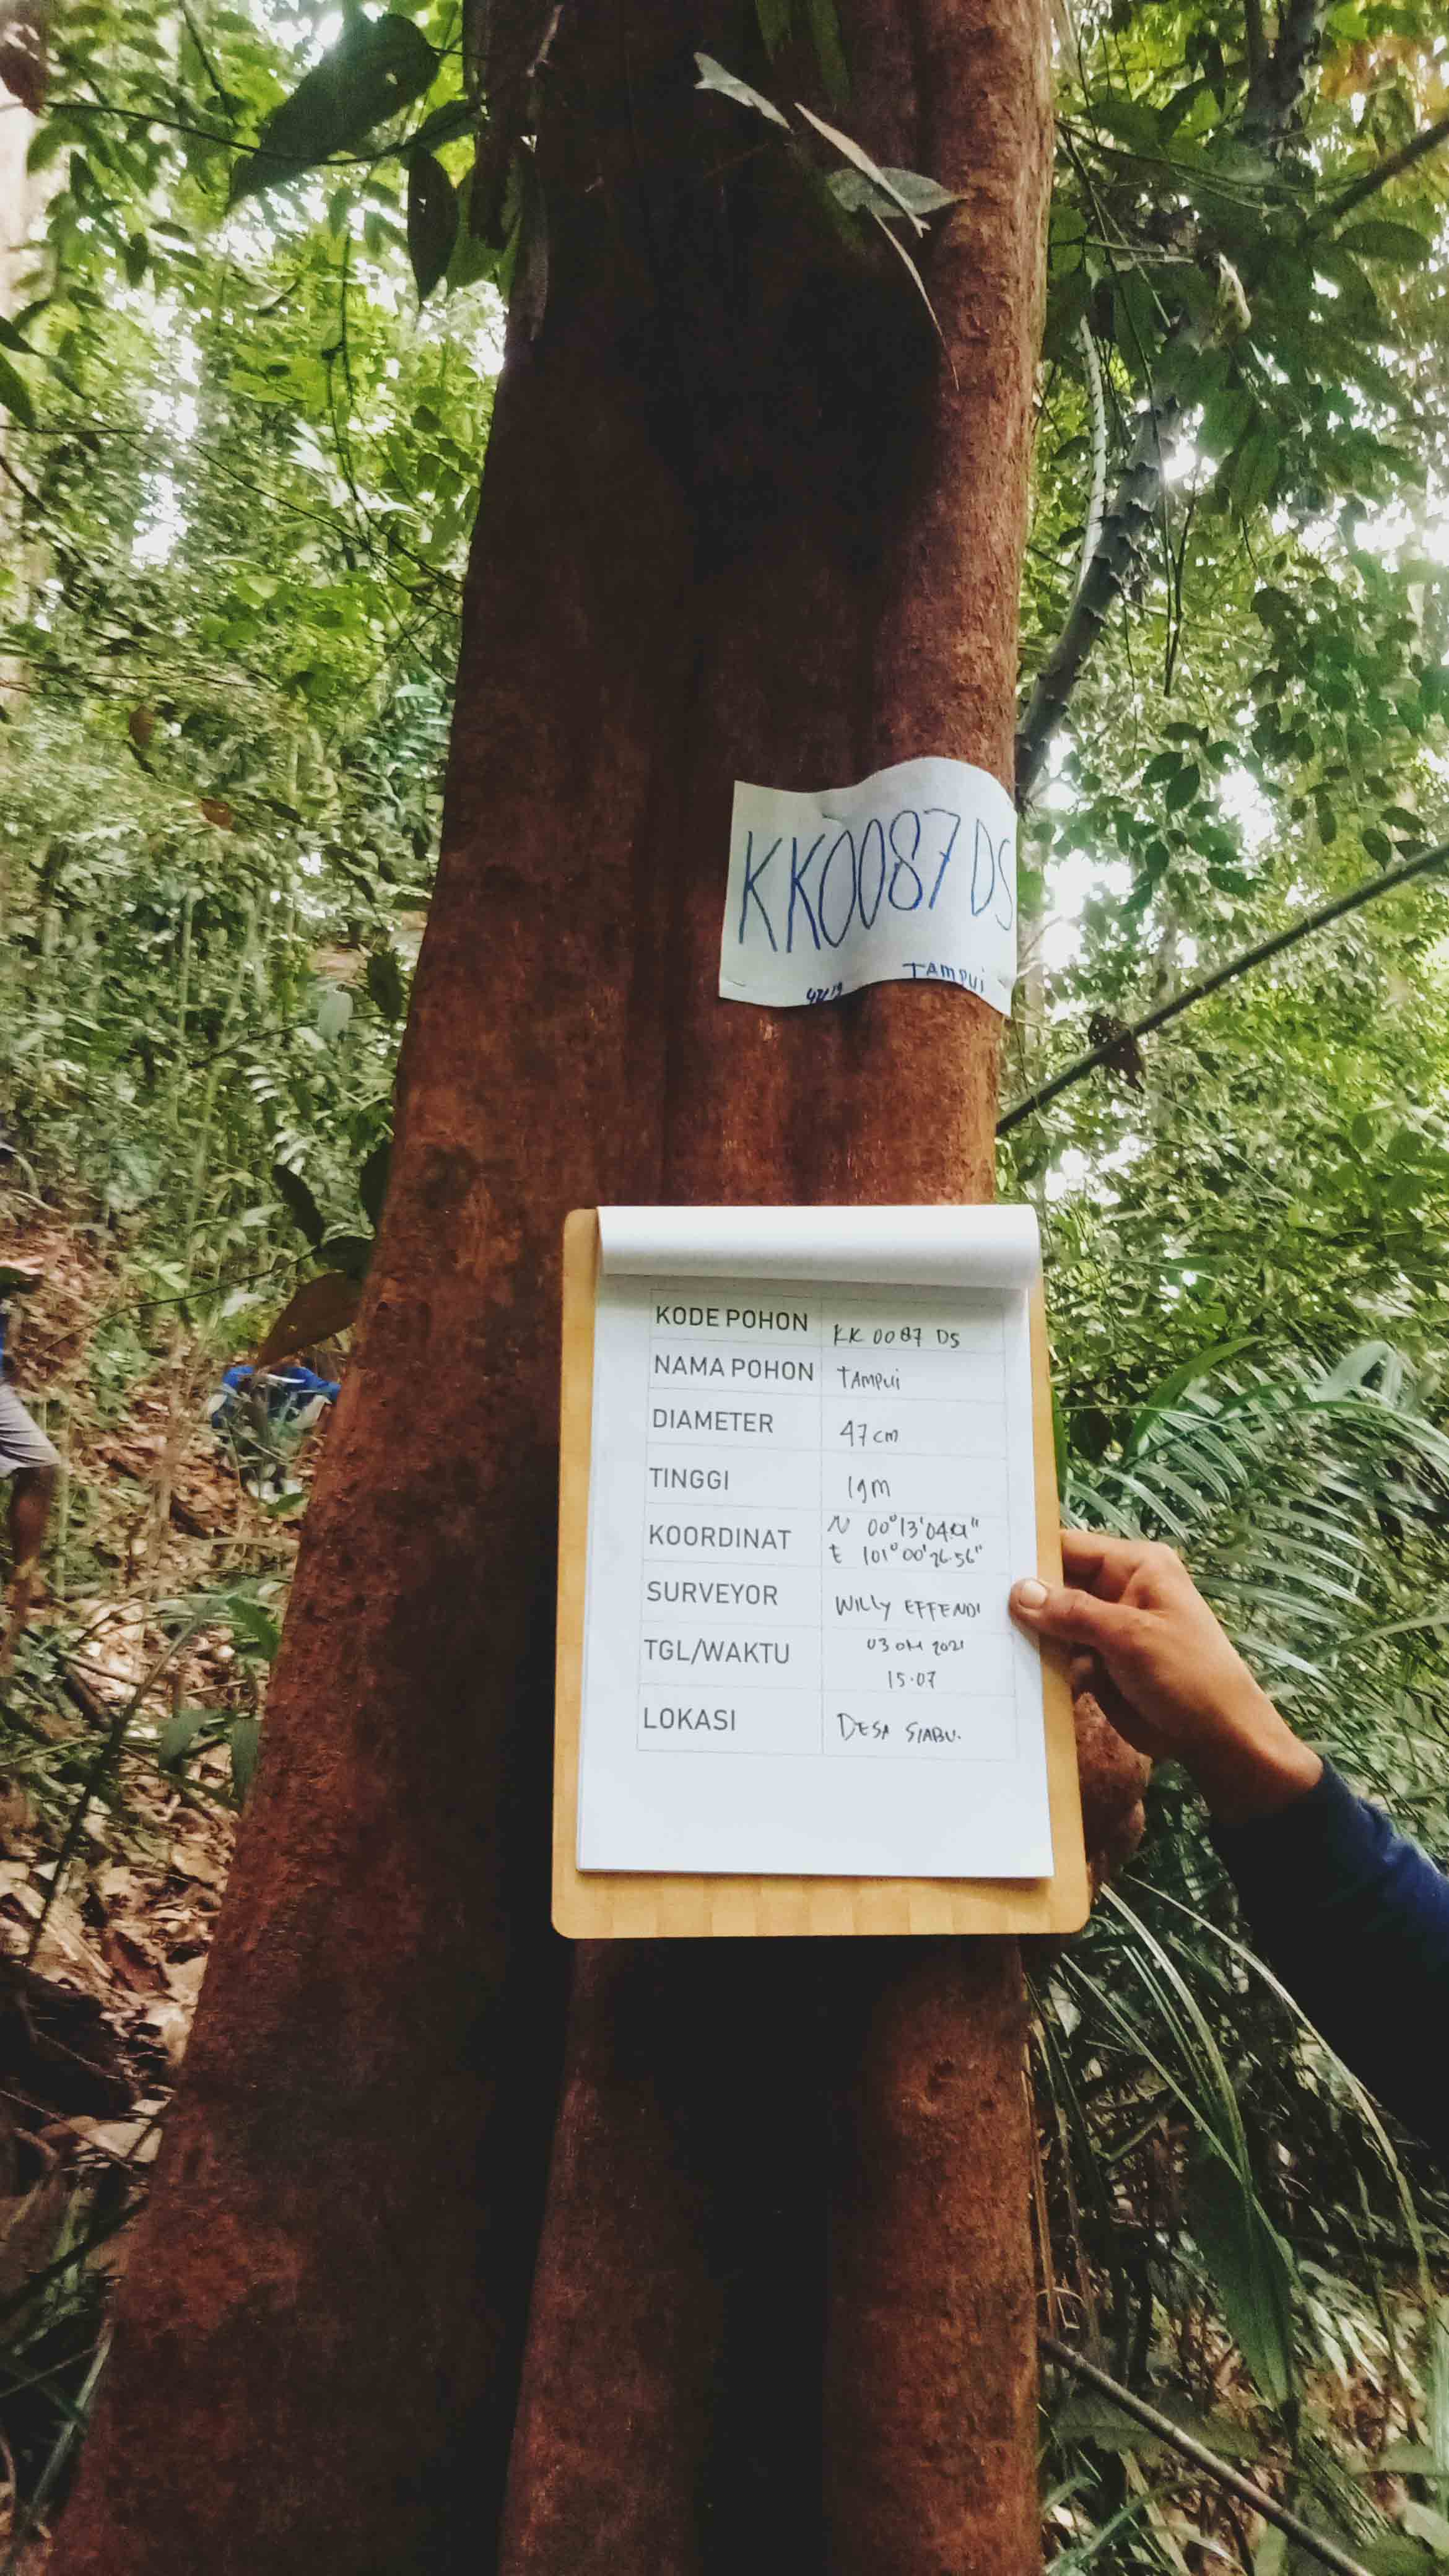 KK0087 DS
TAMPUI
KODE POHON KK 0087 DS
NAMA POHON TAMPUI
DIAMETER 47 cm
TINGGI 19m
KOORDINAT N 00°13'
E 101°00'26.56"
SURVEYOR WILLY EFFENDI
TGL/WAKTU 03 2021
15.07
LOKASI DESA SIABU.